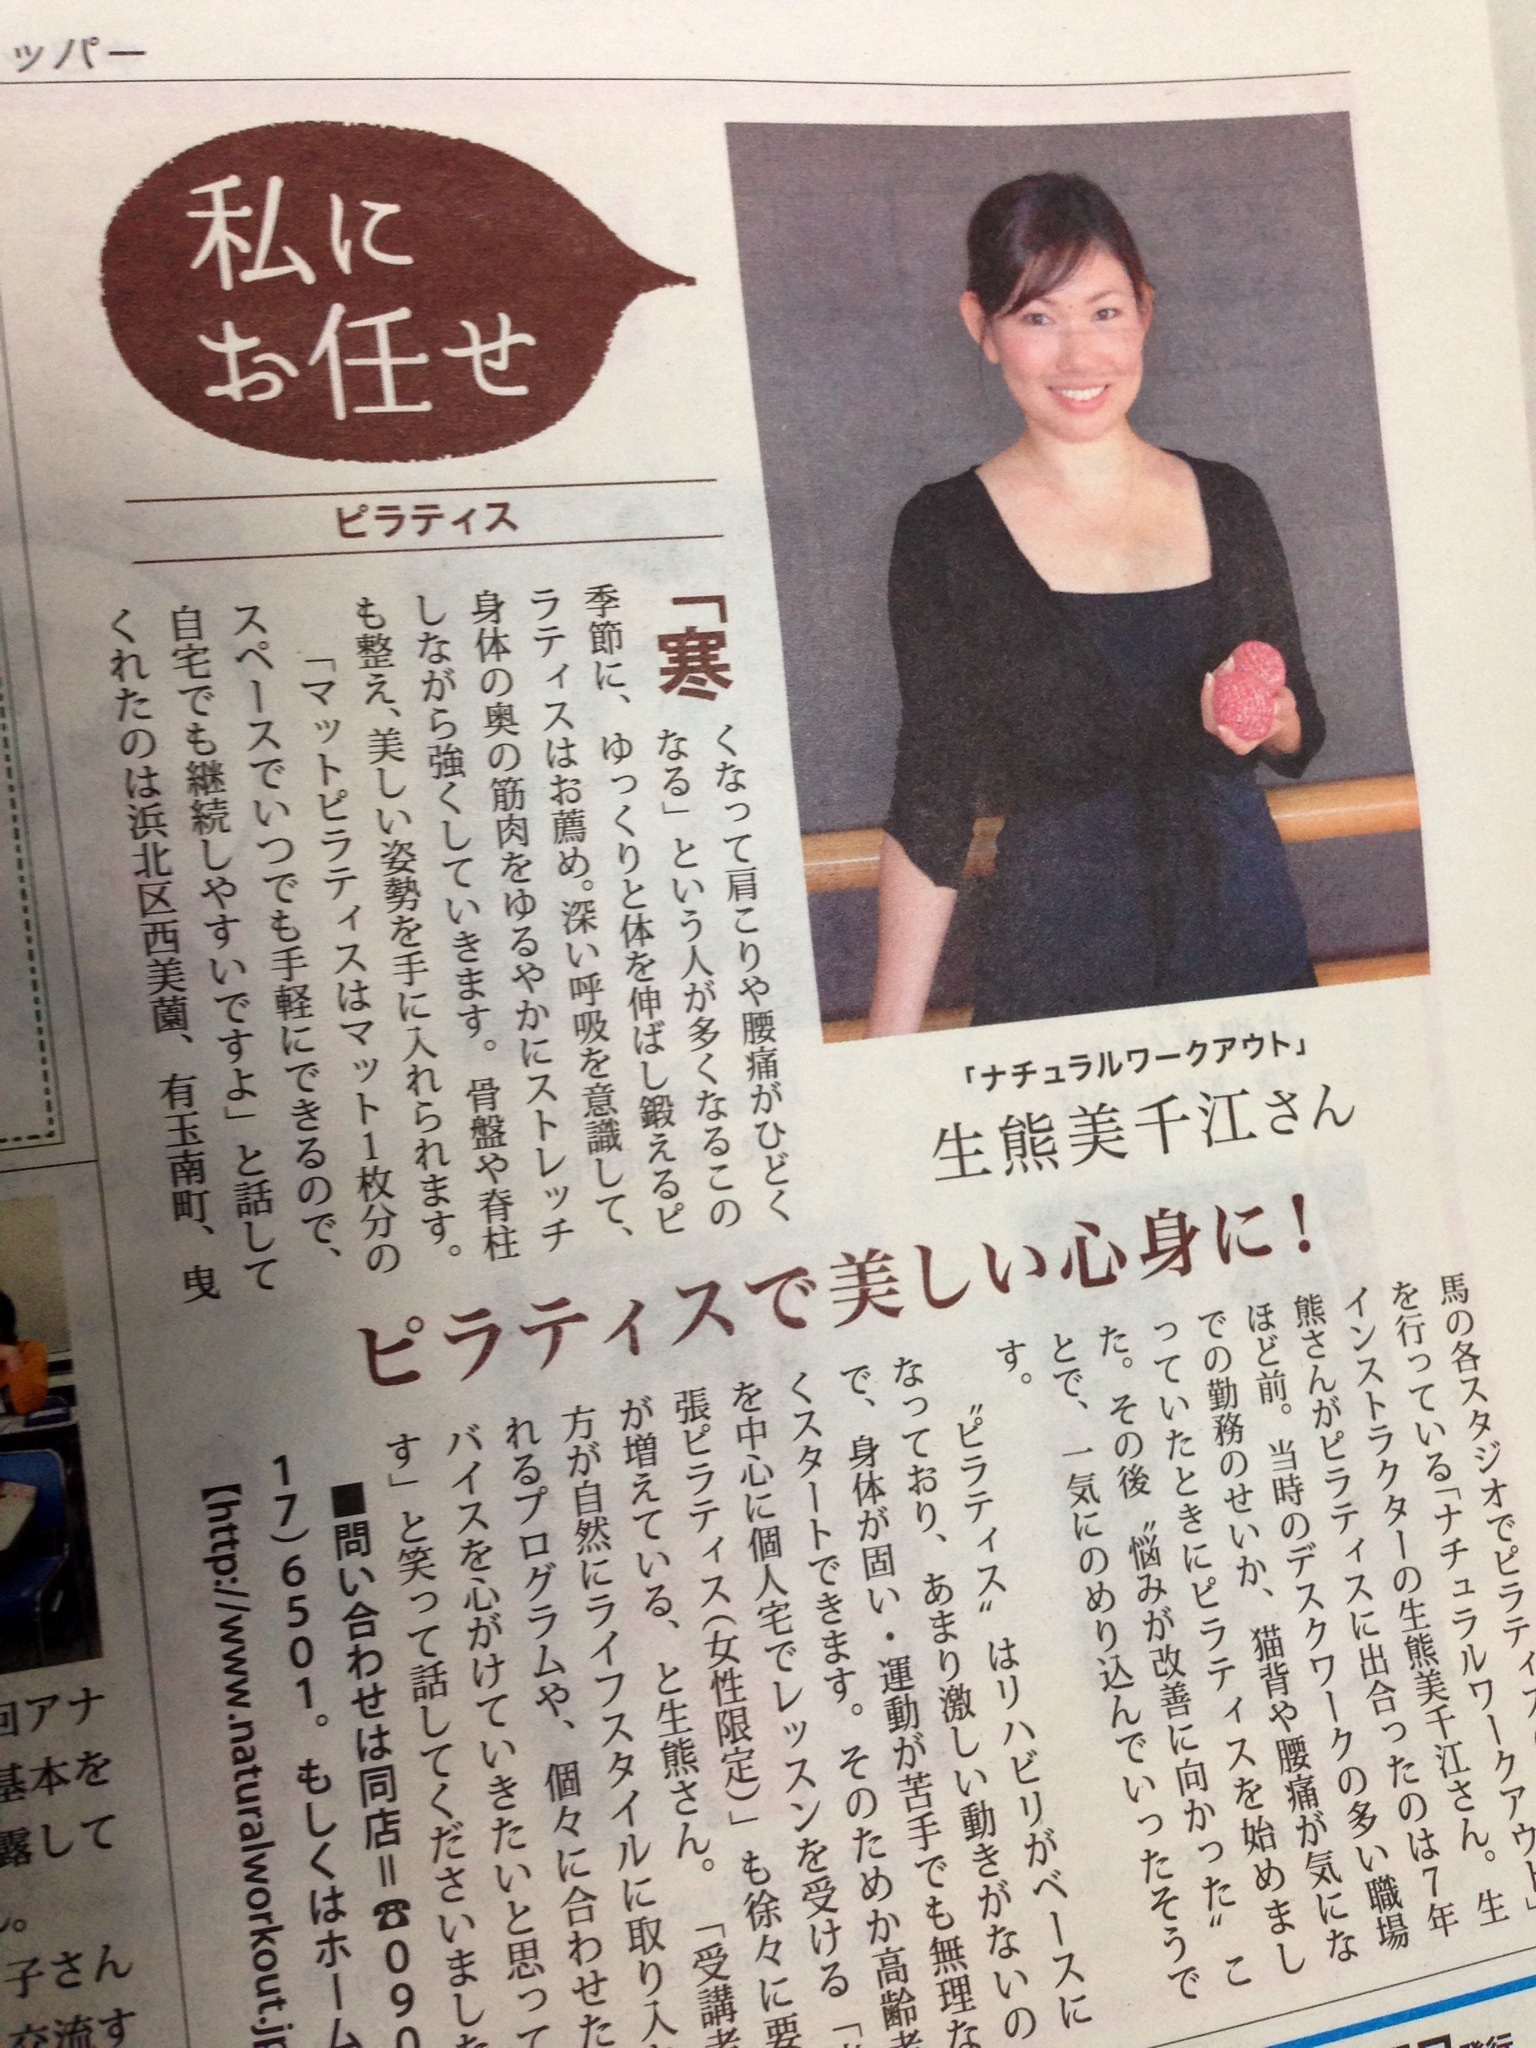 ッパー
私に
お任せ
ピラティス
「寒
くなって肩こりや腰痛がひどく
なる」という人が多くなるこの
季節に、ゆっくりと体を伸ばし鍛えるピ
ラティスはお薦め。深い呼吸を意識して、
身体の奥の筋肉をゆるやかにストレッチ
しながら強くしていきます。骨盤や脊柱
も整え、美しい姿勢を手に入れられます。
「マットピラティスはマット1枚分の
スペースでいつでも手軽にできるので、
自宅でも継続しやすいですよ」と話して
くれたのは浜北区西美薗、有玉南町、曳
「ナチュラルワークアウト」
生熊美千江さん
ピラティスで美しい心身に!
馬の各スタジオでピラティス
を行っている「ナチュラルワークアウト」
インストラクターの生熊美千江さん。生
熊さんがピラティスに出合ったのは7年
ほど前。当時のデスクワークの多い職場
での勤務のせいか、猫背や腰痛が気にな
っていたときにピラティスを始めまし
た。その後〝悩みが改善に向かった〟こ
とで、一気にのめり込んでいったそうで
す。
〝ピラティス〟はリハビリがベースに
なっており、あまり激しい動きがないの
で、身体が固い・運動が苦手でも無理な
くスタートできます。そのためか高齢者
を中心に個人宅でレッスンを受ける「
張ピラティス(女性限定)」も徐々に要
が増えている、と生熊さん。「受講者
方が自然にライフスタイルに取り入
れるプログラムや、個々に合わせた
バイスを心がけていきたいと思って
す」と笑って話してくださいました
■問い合わせは同店=☎090
17)6501。もしくはホーム
【http://www.naturalworkout.jp
回アナ
基本を
露して
ん。
子さん
交流す
発行